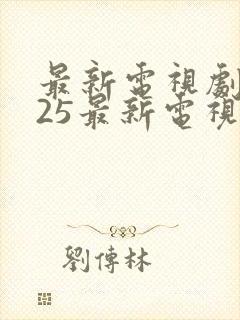 最新電視劇
25最新電視
劉傳林